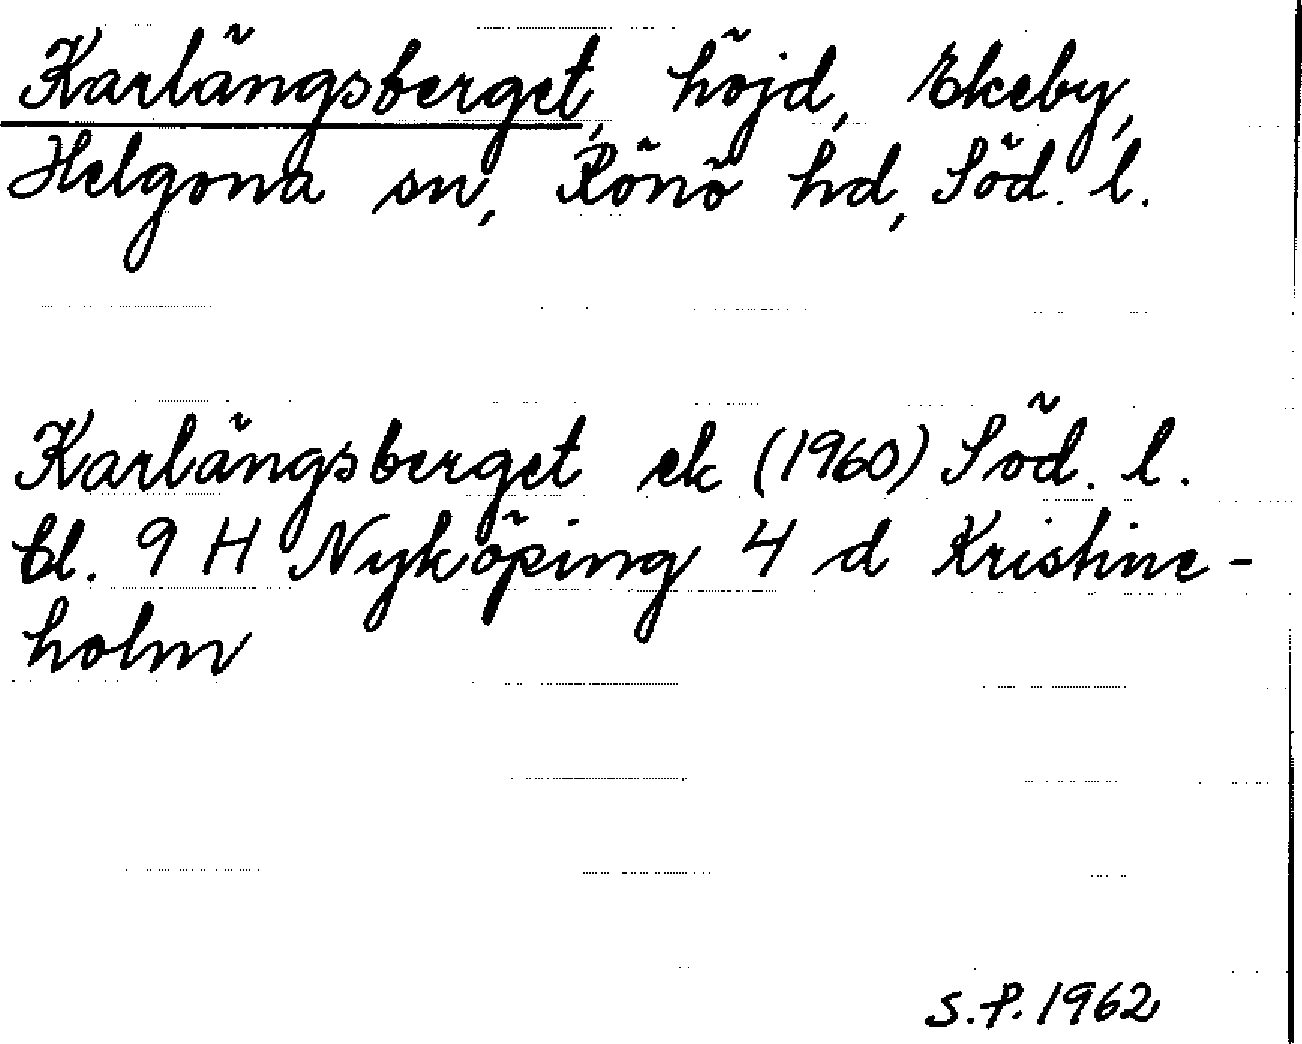 Karlängsberget, höjd, Ekeby,
Helgona sn, Rönö hd, Söd. l.
Karlängsberget ek (1960) Söd. l.
bl. 9 H Nyköping 4 d Kristine-
holm
S.P. 1962